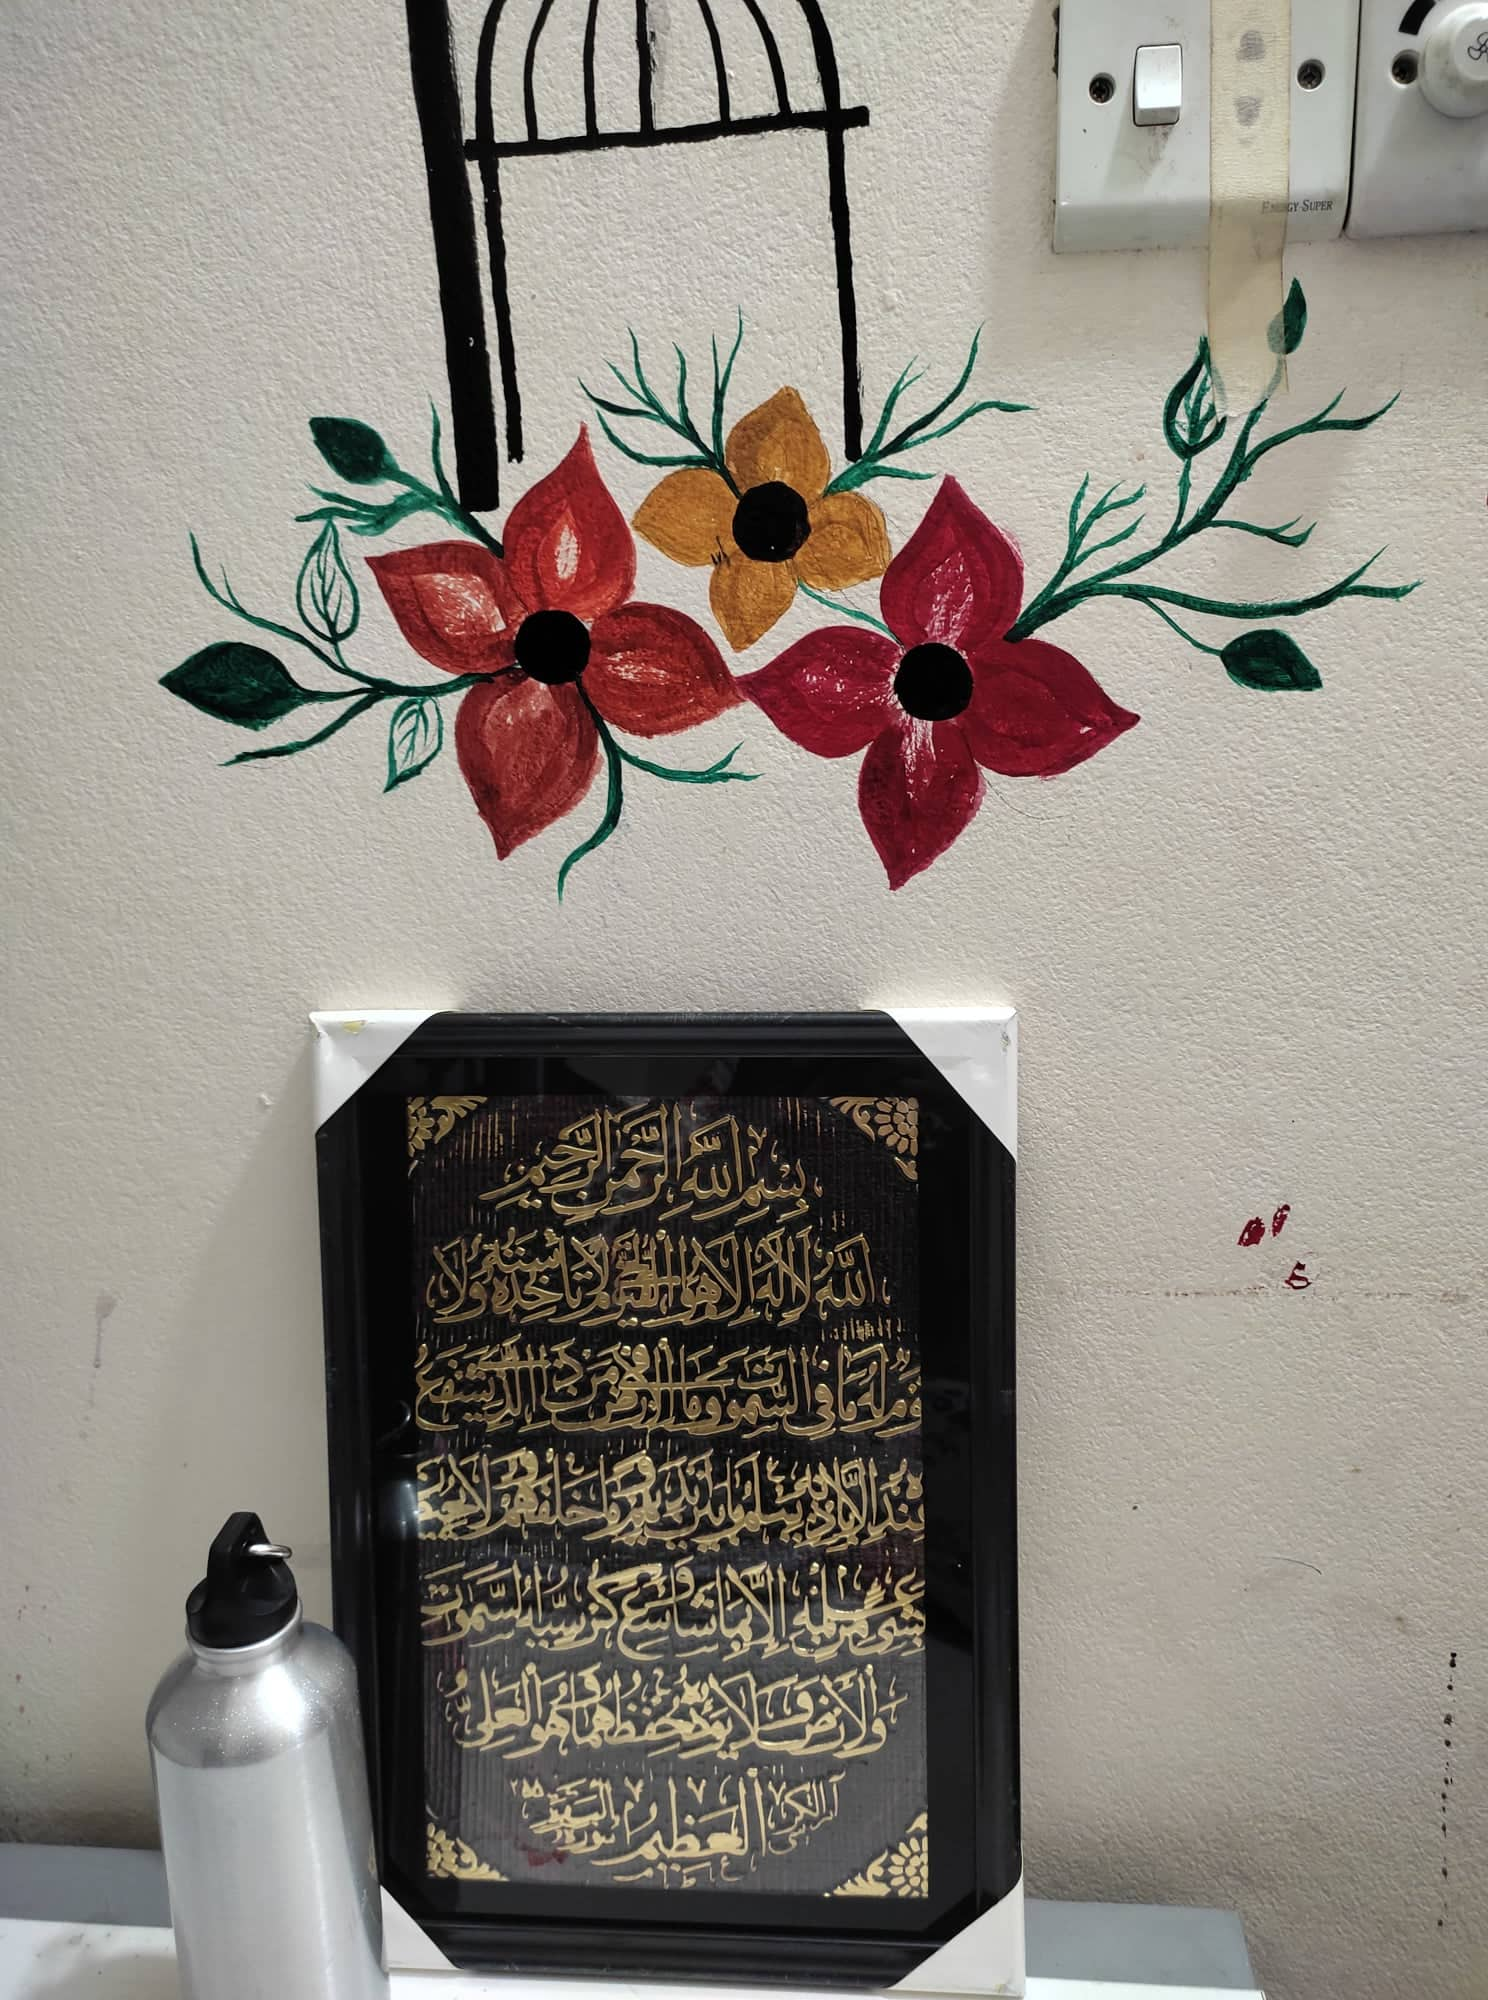 ENERGY SUPER
بِسْمِ اللَّهِ الرَّحْمَنِ الرَّحِيمِ
اللَّهُ لَا إِلَهَ إِلَّا هُوَ الْحَيُّ الْقَيُّومُ لَا تَأْخُذُهُ سِنَةٌ وَلَا
نَوْمٌ لَهُ مَا فِي السَّمَوَتِ وَمَا فِي الْأَرْضِ مَن ذَا الَّذِي يَشْفَعُ
عِندَهُ إِلَّا بِإِذْنِهِ يَعْلَمُ مَا بَيْنَ أَيْدِيهِمْ وَمَا خَلْفَهُمْ وَلَا يُحِيطُونَ
بِشَيْءٍ مِنْ عِلْمِهِ إِلَّا بِمَا شَاءَ وَسِعَ كُرْسِيُّهُ السَّمَوَتِ
وَالْأَرْضَ وَلَا يَئُودُهُ حِفْظُهُمَا وَهُوَ الْعَلِيُّ
الْعَظِيمُ
آية الكرسي
سورة البقرة ٢٥٥